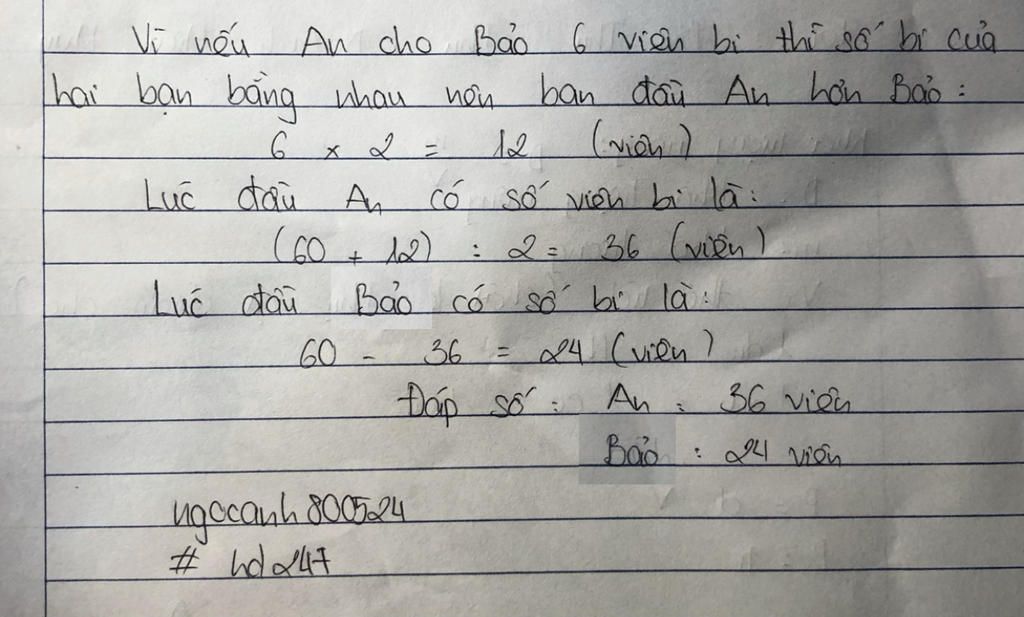 Vì nếu An cho Bảo 6 viên bi thì số bi của
hai bạn bằng nhau nên ban đầu An hơn Bảo :
6 x 2 = 12 (viên)
Lúc đầu An có số viên bi là:
(60 + 12) : 2 = 36 (viên)
Lúc đầu Bảo có số bi là:
60 - 36 = 24 (viên)
Đáp số : An : 36 viên
Bảo : 24 viên
ngocanh800524
# hd247